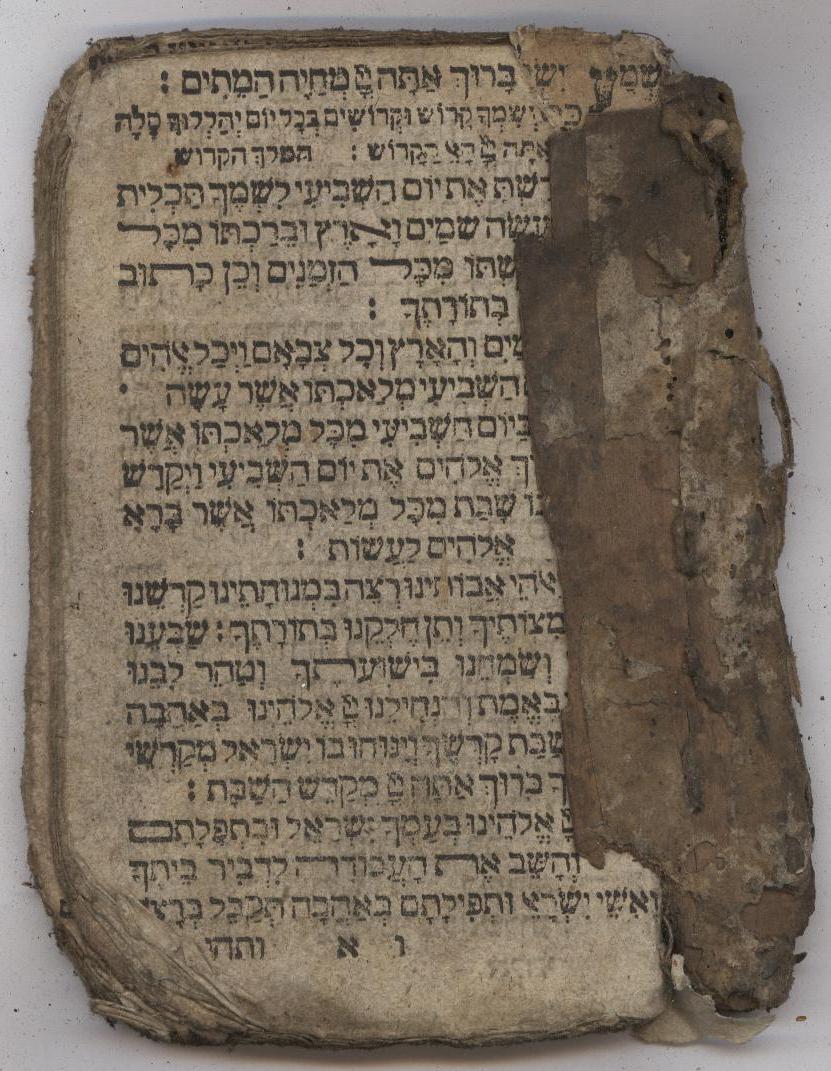 בָּרוּךְ אַתָּה יְיָ מְחַיֵּה הַמֵּתִים :
וְשִׁמְךָ קָדוֹשׁ וּקְדוֹשִׁים בְּכָל יוֹם יְהַלְלוּךָ סֶּלָה
הקדוש : המלך הקדוש
אֶת יוֹם הַשְּׁבִיעִי לִשְׁמֶךָ תַּכְלִית
שָׁמַיִם וָאָרֶץ וּבֵרַכְתּוֹ מִכָּל
מִכָּל הַזְּמַנִּים וְכֵן כָּתוּב
בְּתוֹרָתֶךָ :
וְהָאָרֶץ וְכָל צְבָאָם וַיְכַל אֱלֹהִים
הַשְּׁבִיעִי מְלַאכְתּוֹ אֲשֶׁר עָשָׂה
בַּיוֹם הַשְּׁבִיעִי מִכָּל מְלַאכְתּוֹ אֲשֶׁר
אֱלֹהִים אֶת יוֹם הַשְּׁבִיעִי וַיְקַדֵּשׁ
שָׁבַת מִכָּל מְלַאכְתּוֹ אֲשֶׁר בָּרָא
אֱלֹהִים לַעֲשׂוֹת :
אֲבוֹתֵינוּ רְצֵה בִמְנוּחָתֵינוּ קַדְּשֵׁנוּ
מִצְוֹתֶיךָ וְתֵן חֶלְקֵנוּ בְּתוֹרָתֶךָ : שַׂבְּעֵנוּ
וְשַׂמְּחֵנוּ בִּישׁוּעָתֶךָ וְטַהֵר לִבֵּנוּ
בֶּאֱמֶת וְהַנְחִילֵנוּ יְיָ אֱלֹהֵינוּ בְּאַהֲבָה
שַׁבַּת קָדְשֶׁךָ וְיָנוּחוּ בוֹ יִשְׂרָאֵל מְקַדְּשֵׁי
בָּרוּךְ אַתָּה יְיָ מְקַדֵּשׁ הַשַּׁבָּת :
אֱלֹהֵינוּ בְּעַמְּךָ יִשְׂרָאֵל וּבִתְפִלָּתָם
וְהָשֵׁב אֶת הָעֲבוֹדָה לִדְבִיר בֵּיתֶךָ
וְאִשֵּׁי יִשְׂרָאֵ וּתְפִילָתָם בְּאַהֲבָה תְּקַבֵּל בְּרָצוֹ
ו א ותהי